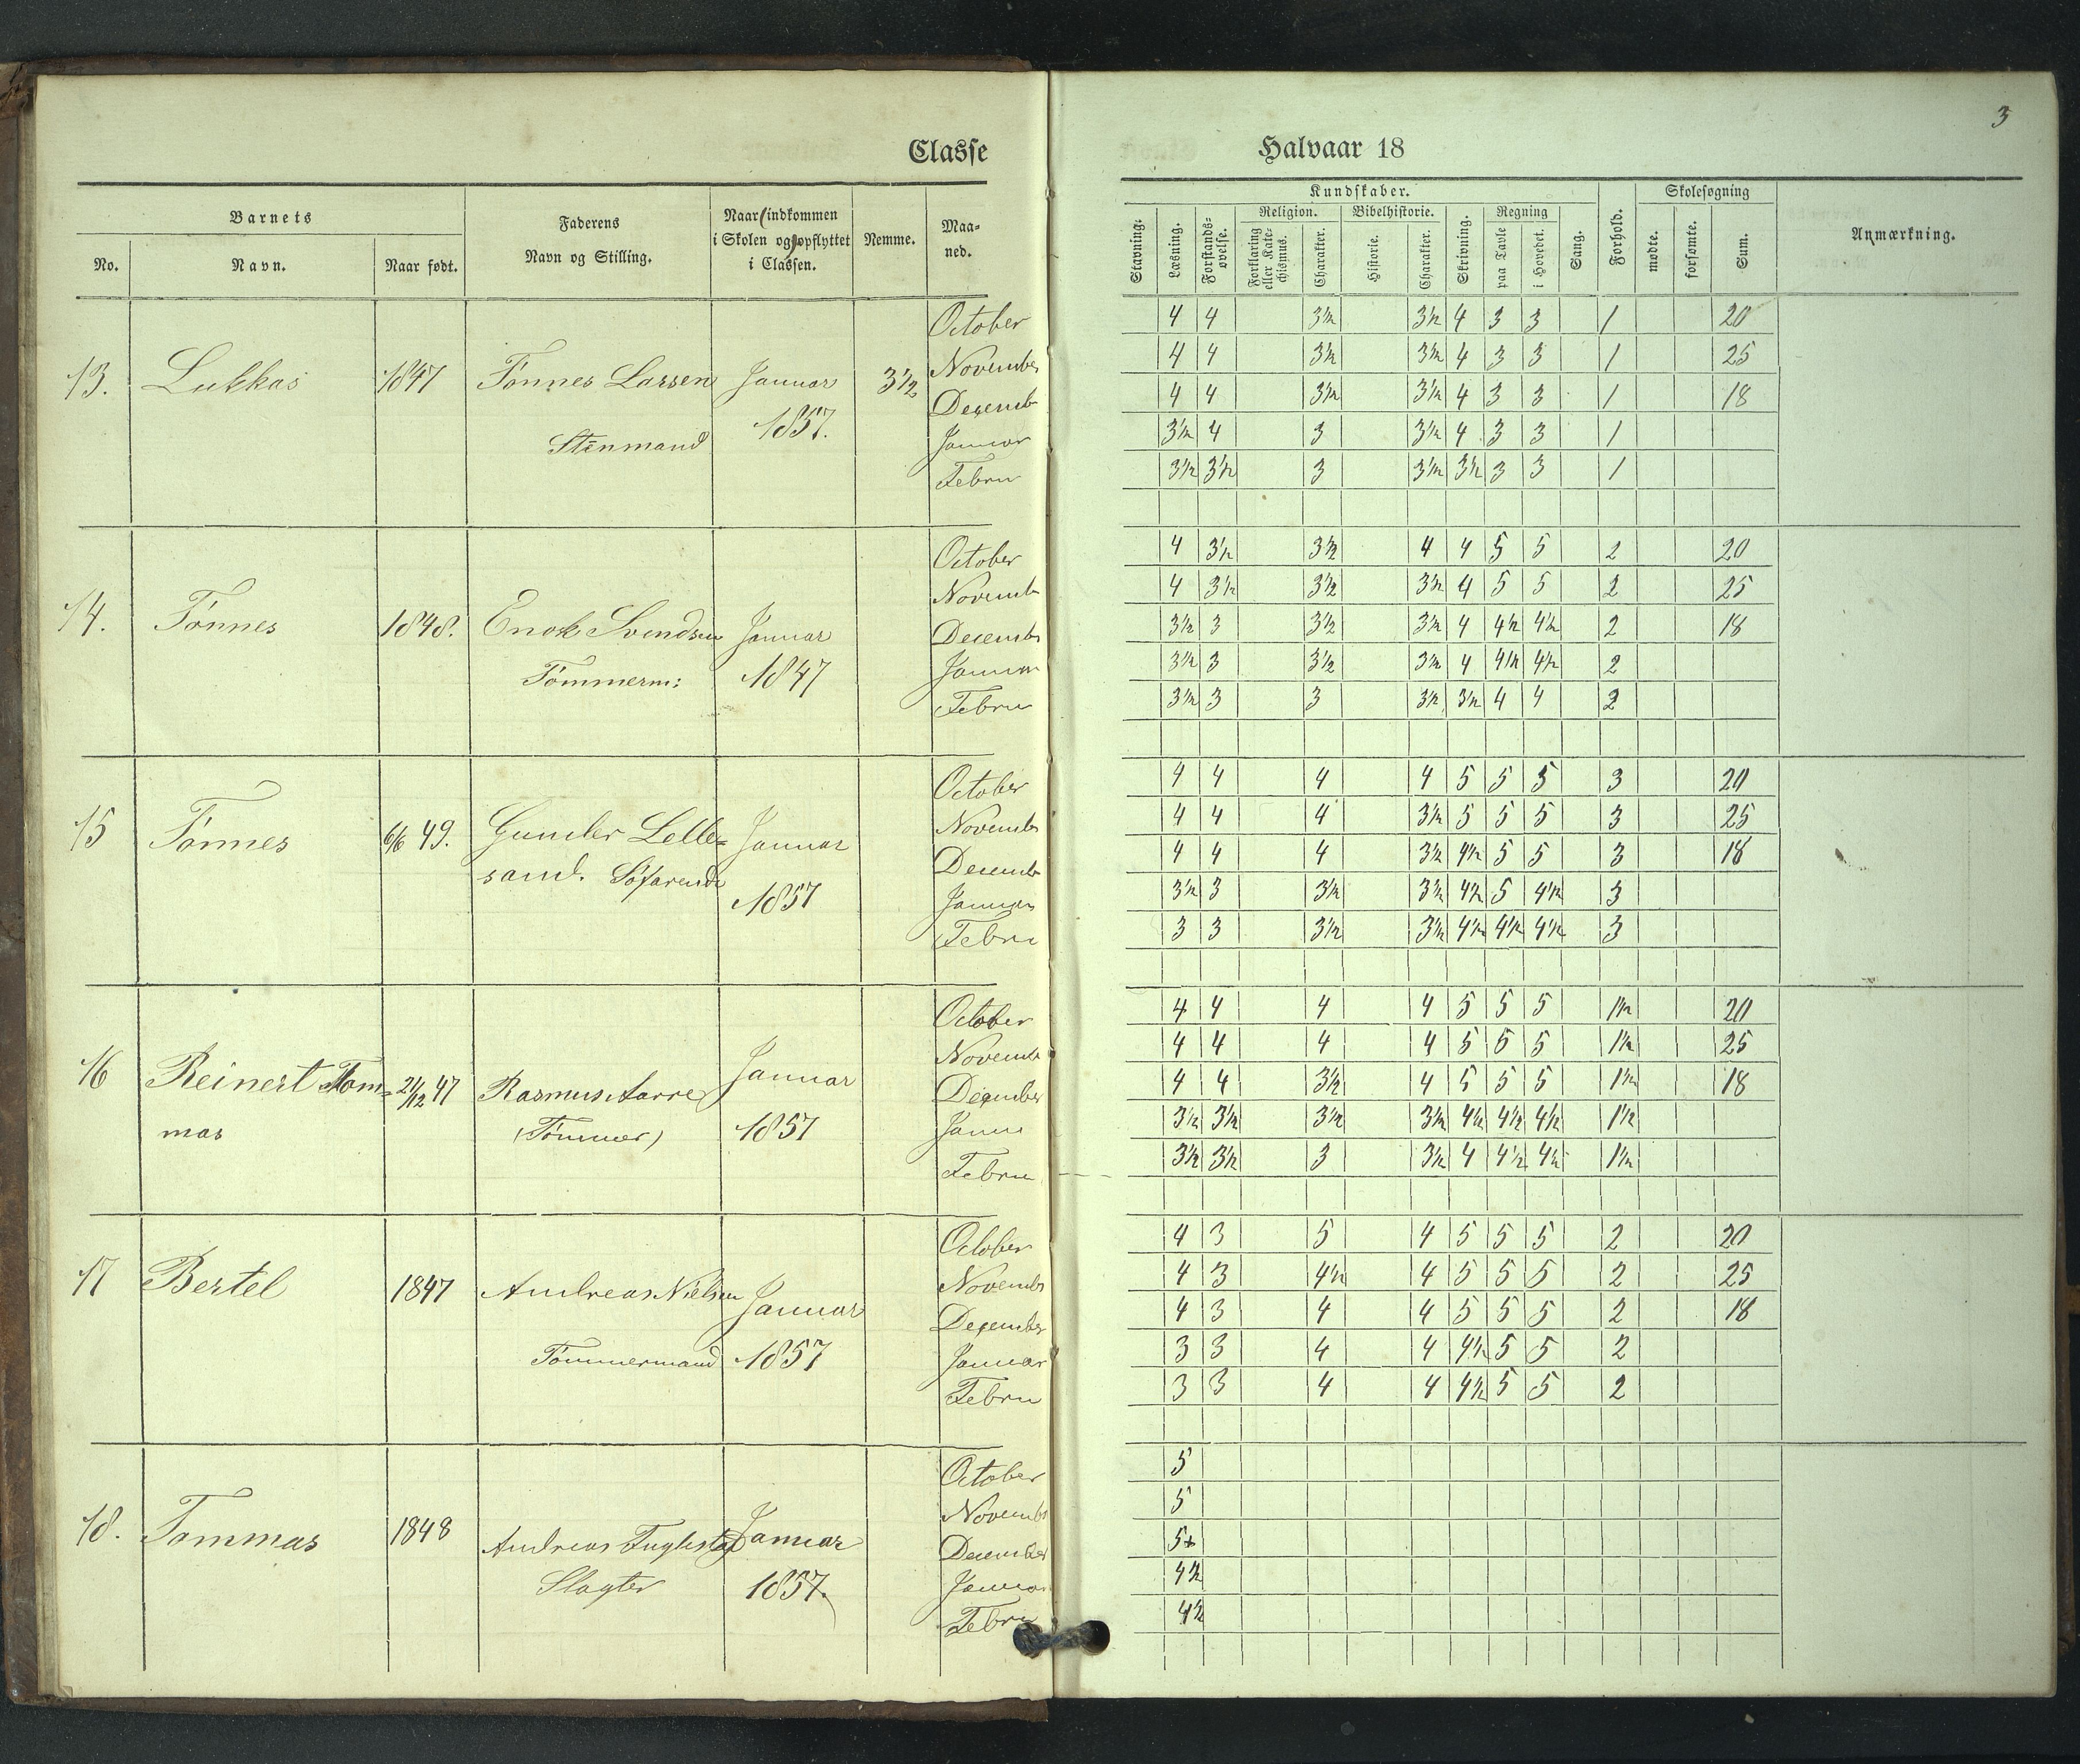 3
Classe
Halvaar 18
Barnets
No.
Navn.
Naar født.
Faderens
Navn og Stilling.
Naar indkommen
i Skolen og opflyttet
i Classen.
Nemme.
Maa-
ned.
Kundskaber.
Stavning.
Læsning.
Forstands-
øvelse.
Religion.
Forklaring
eller Kate-
chismus.
Charakter.
Bibelhistorie.
Historie.
Charakter.
Skrivning.
Regning
paa Tavle
i Hovedet.
Sang.
Forhold.
Skolesøgning
mødte.
forsømte.
Sum.
Anmærkning.
13. Lukkas 1847 Tönnes Larsen Januar 3½
Stenmand 1857.
October 4 4 3½ 3½ 4 3 3 1 20
November 4 4 3½ 3½ 4 3 3 1 25
Decemb 4 4 3½ 3½ 4 3 3 1 18
Januar 3½ 4 3 3½ 4 3 3 1
Febru 3½ 3½ 3 3½ 3½ 3 3 1
14. Tönnes 1848. Enok Svendsen Januar
Tömmerm: 1847
October 4 3½ 3½ 4 4 5 5 2 20
Novemb 4 3½ 3½ 3½ 4 5 5 2 25
Decemb 3½ 3 3½ 3½ 4 4½ 4½ 2 18
Januar 3½ 3 3½ 3½ 4 4½ 4½ 2
Febru 3½ 3 3 3½ 3½ 4 4 2
15 Tönnes 6/6 49. Gunder Lille- Januar
sand. Söfarende 1857
October 4 4 4 4 5 5 5 3 20
Novembr 4 4 4 3½ 5 5 5 3 25
Decemb 4 4 4 3½ 4½ 5 5 3 18
Januar 3½ 3 3½ 3½ 4½ 5 4½ 3
Febru 3 3 3½ 3½ 4½ 4½ 4½ 3
16 Reinert Tom- 21/12 47 Rasmus Aarre Januar
mas (Tömmer) 1857
October 4 4 4 4 5 5 5 1½ 20
Novemb 4 4 4 4 5 5 5 1½ 25
December 4 4 3½ 4 5 5 5 1½ 18
Janu 3½ 3½ 3½ 3½ 4½ 4½ 4½ 1½
Febru 3½ 3½ 3 3½ 4 4½ 4½ 1½
17 Bertel 1847 Andreas Nielsen Januar
Tömmermand 1857
October 4 3 5 4 5 5 5 2 20
Novembr 4 3 4½ 4 5 5 5 2 25
December 4 3 4 4 5 5 5 2 18
Januar 3 3 4 4 4½ 5 5 2
Febru 3 3 4 4 4½ 5 5 2
18. Tommas 1848 Andreas Januar
Slagter 1857.
October 5
Novemb 5
December 5+
Januar 4½
Febru 4½